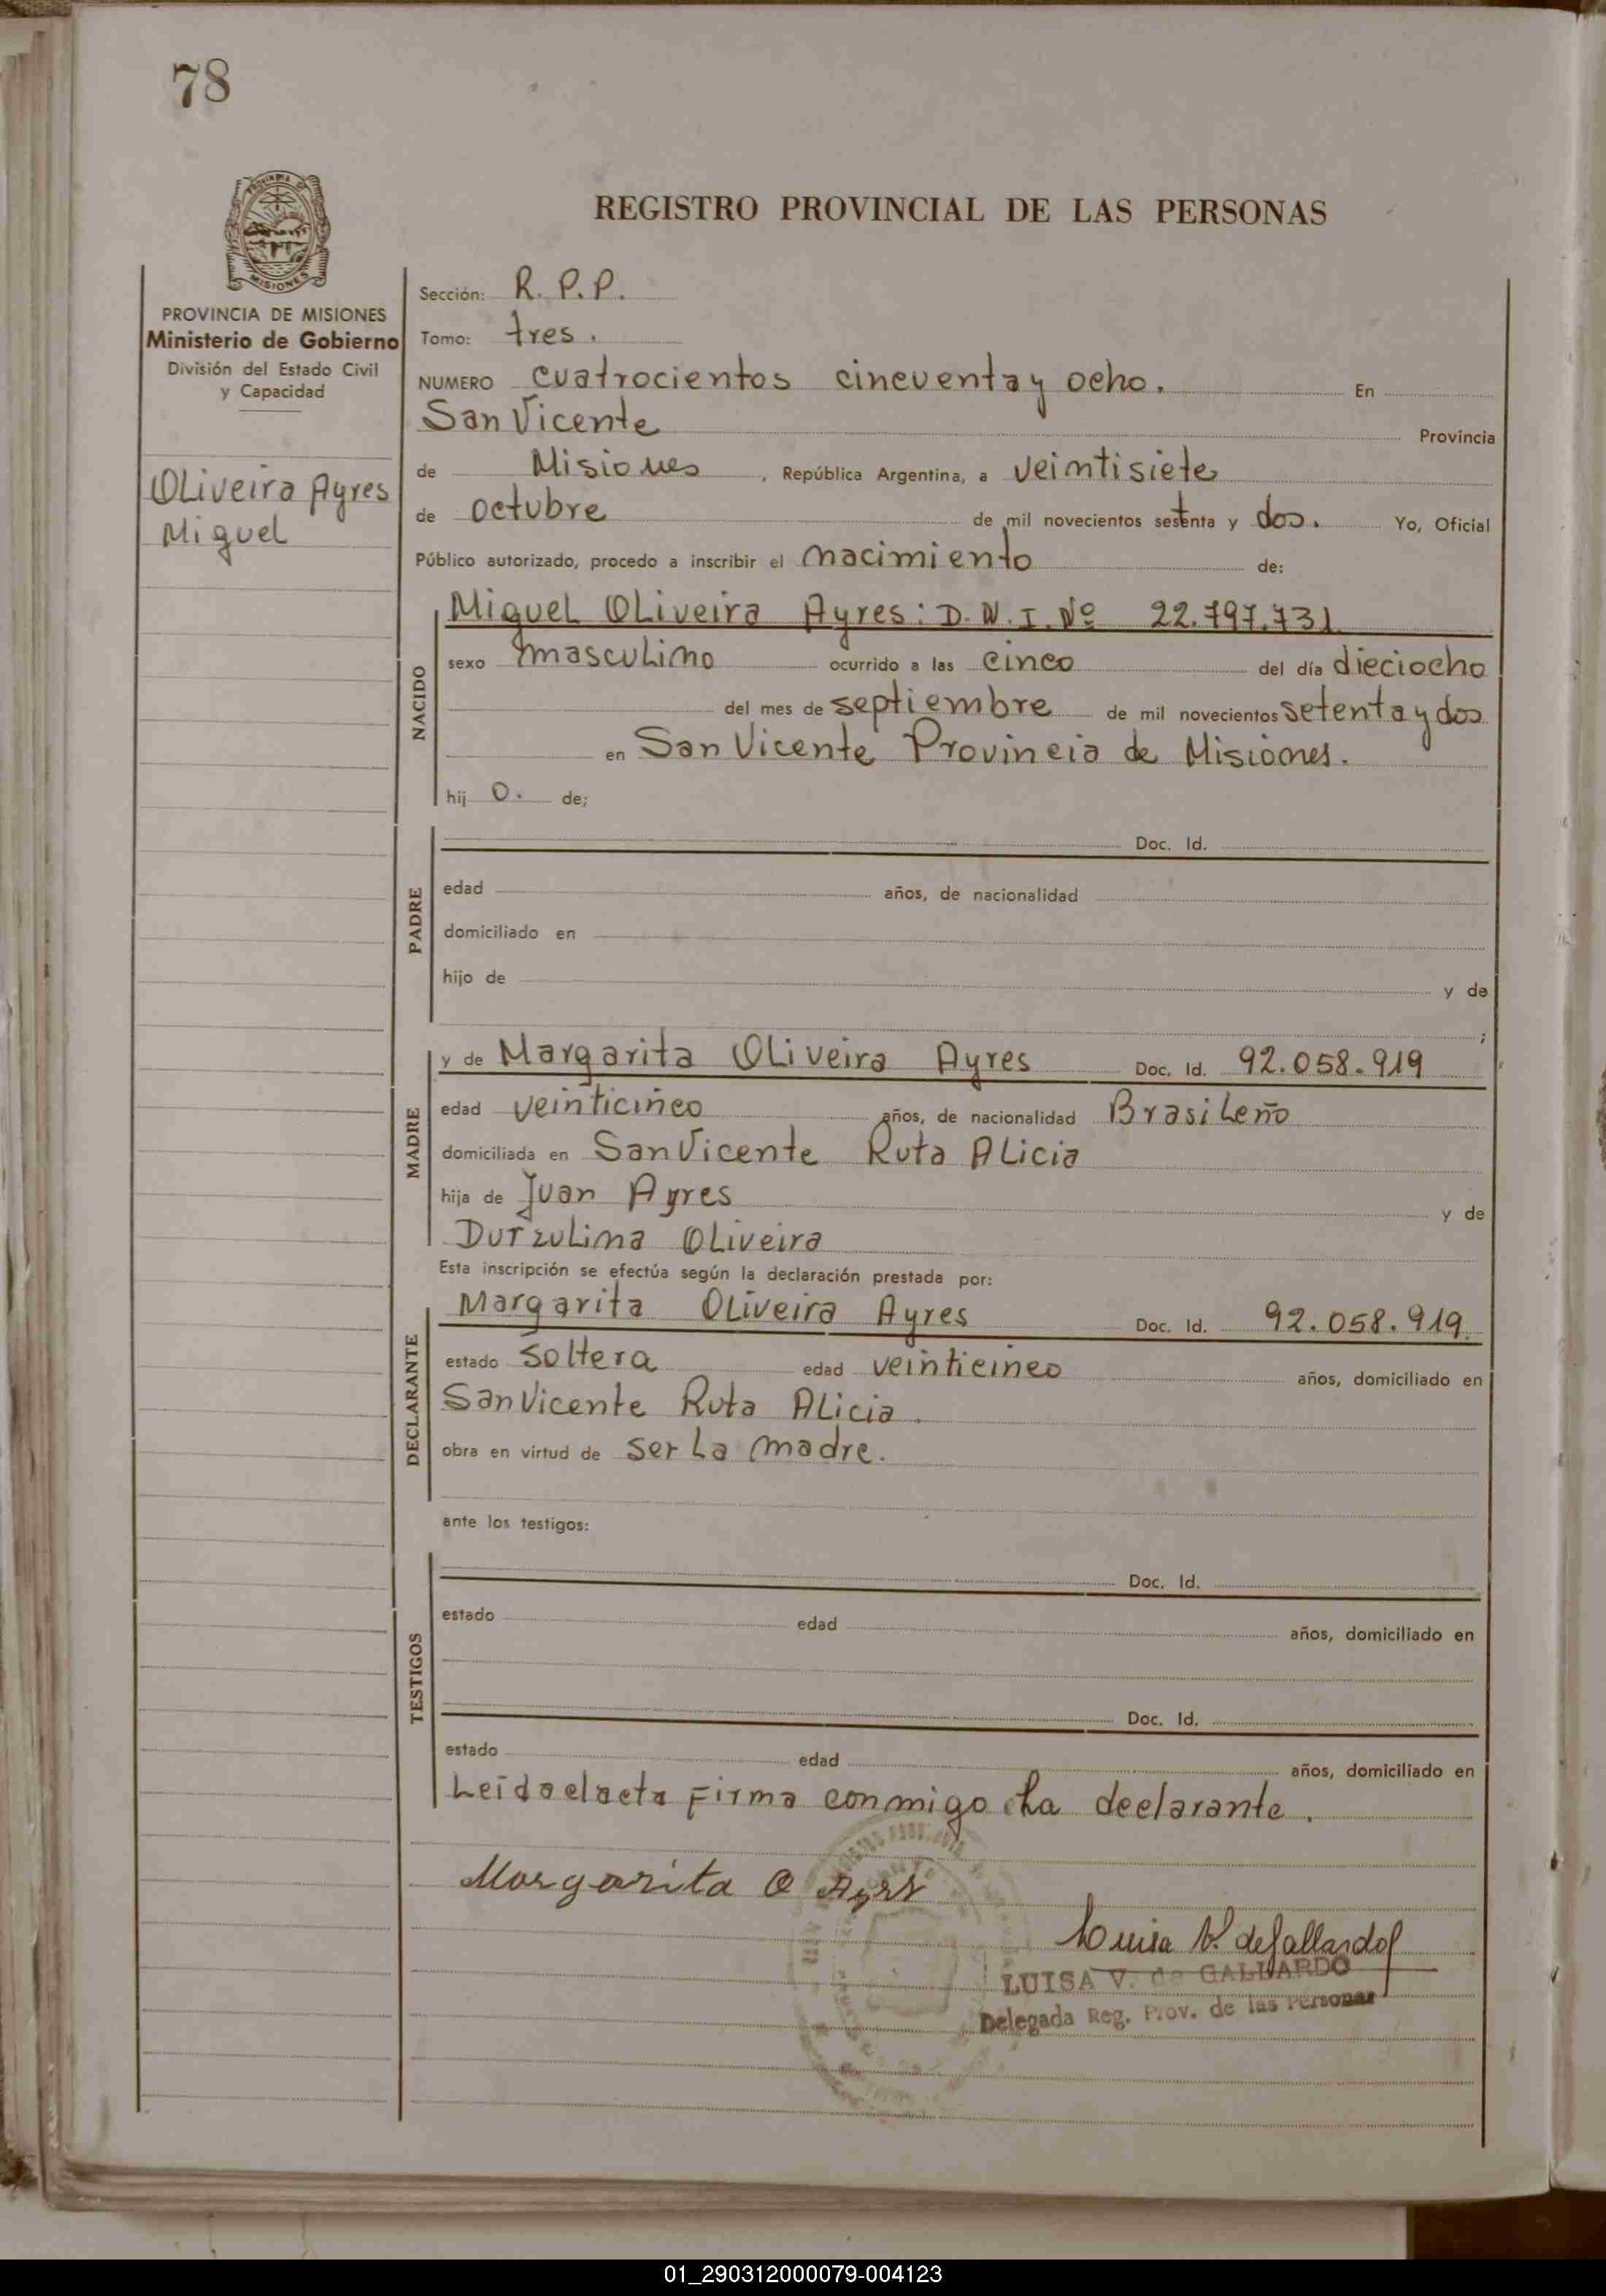 78
PROVINCIA DE
MISIONES
REGISTRO PROVINCIAL DE LAS PERSONAS
PROVINCIA DE MISIONES
Ministerio de Gobierno
División del Estado Civil
y Capacidad
Oliveira Ayres
Miguel
Sección: R. P. P.
Tomo: tres.
NUMERO cuatrocientos cincuenta y ocho. En
San Vicente Provincia
de Misiones, República Argentina, a veintisiete
de octubre de mil novecientos setenta y dos. Yo, Oficial
Público autorizado, procedo a inscribir el nacimiento de:
NACIDO
Miguel Oliveira Ayres: D. N. I. Nº 22.797.731
sexo masculino ocurrido a las cinco del día dieciocho
del mes de septiembre de mil novecientos setenta y dos
en San Vicente Provincia de Misiones.
hij o. de;
PADRE
Doc. Id.
edad años, de nacionalidad
domiciliado en
hijo de y de
;
MADRE
y de Margarita Oliveira Ayres Doc. Id. 92.058.919
edad veinticinco años, de nacionalidad Brasileño
domiciliada en San Vicente Ruta Alicia
hija de Juan Ayres y de
Durzulina Oliveira
Esta inscripción se efectúa según la declaración prestada por:
DECLARANTE
Margarita Oliveira Ayres Doc. Id. 92.058.919
estado soltera edad veinticinco años, domiciliado en
San Vicente Ruta Alicia.
obra en virtud de ser la madre.
ante los testigos:
TESTIGOS
Doc. Id.
estado edad años, domiciliado en
Doc. Id.
estado edad años, domiciliado en
Leída el acta firma conmigo la declarante.
Margarita O Ayres
Luisa V. de Gallardo
LUISA V. de GALLARDO
Delegada Reg. Prov. de las Personas
01_290312000079-004123